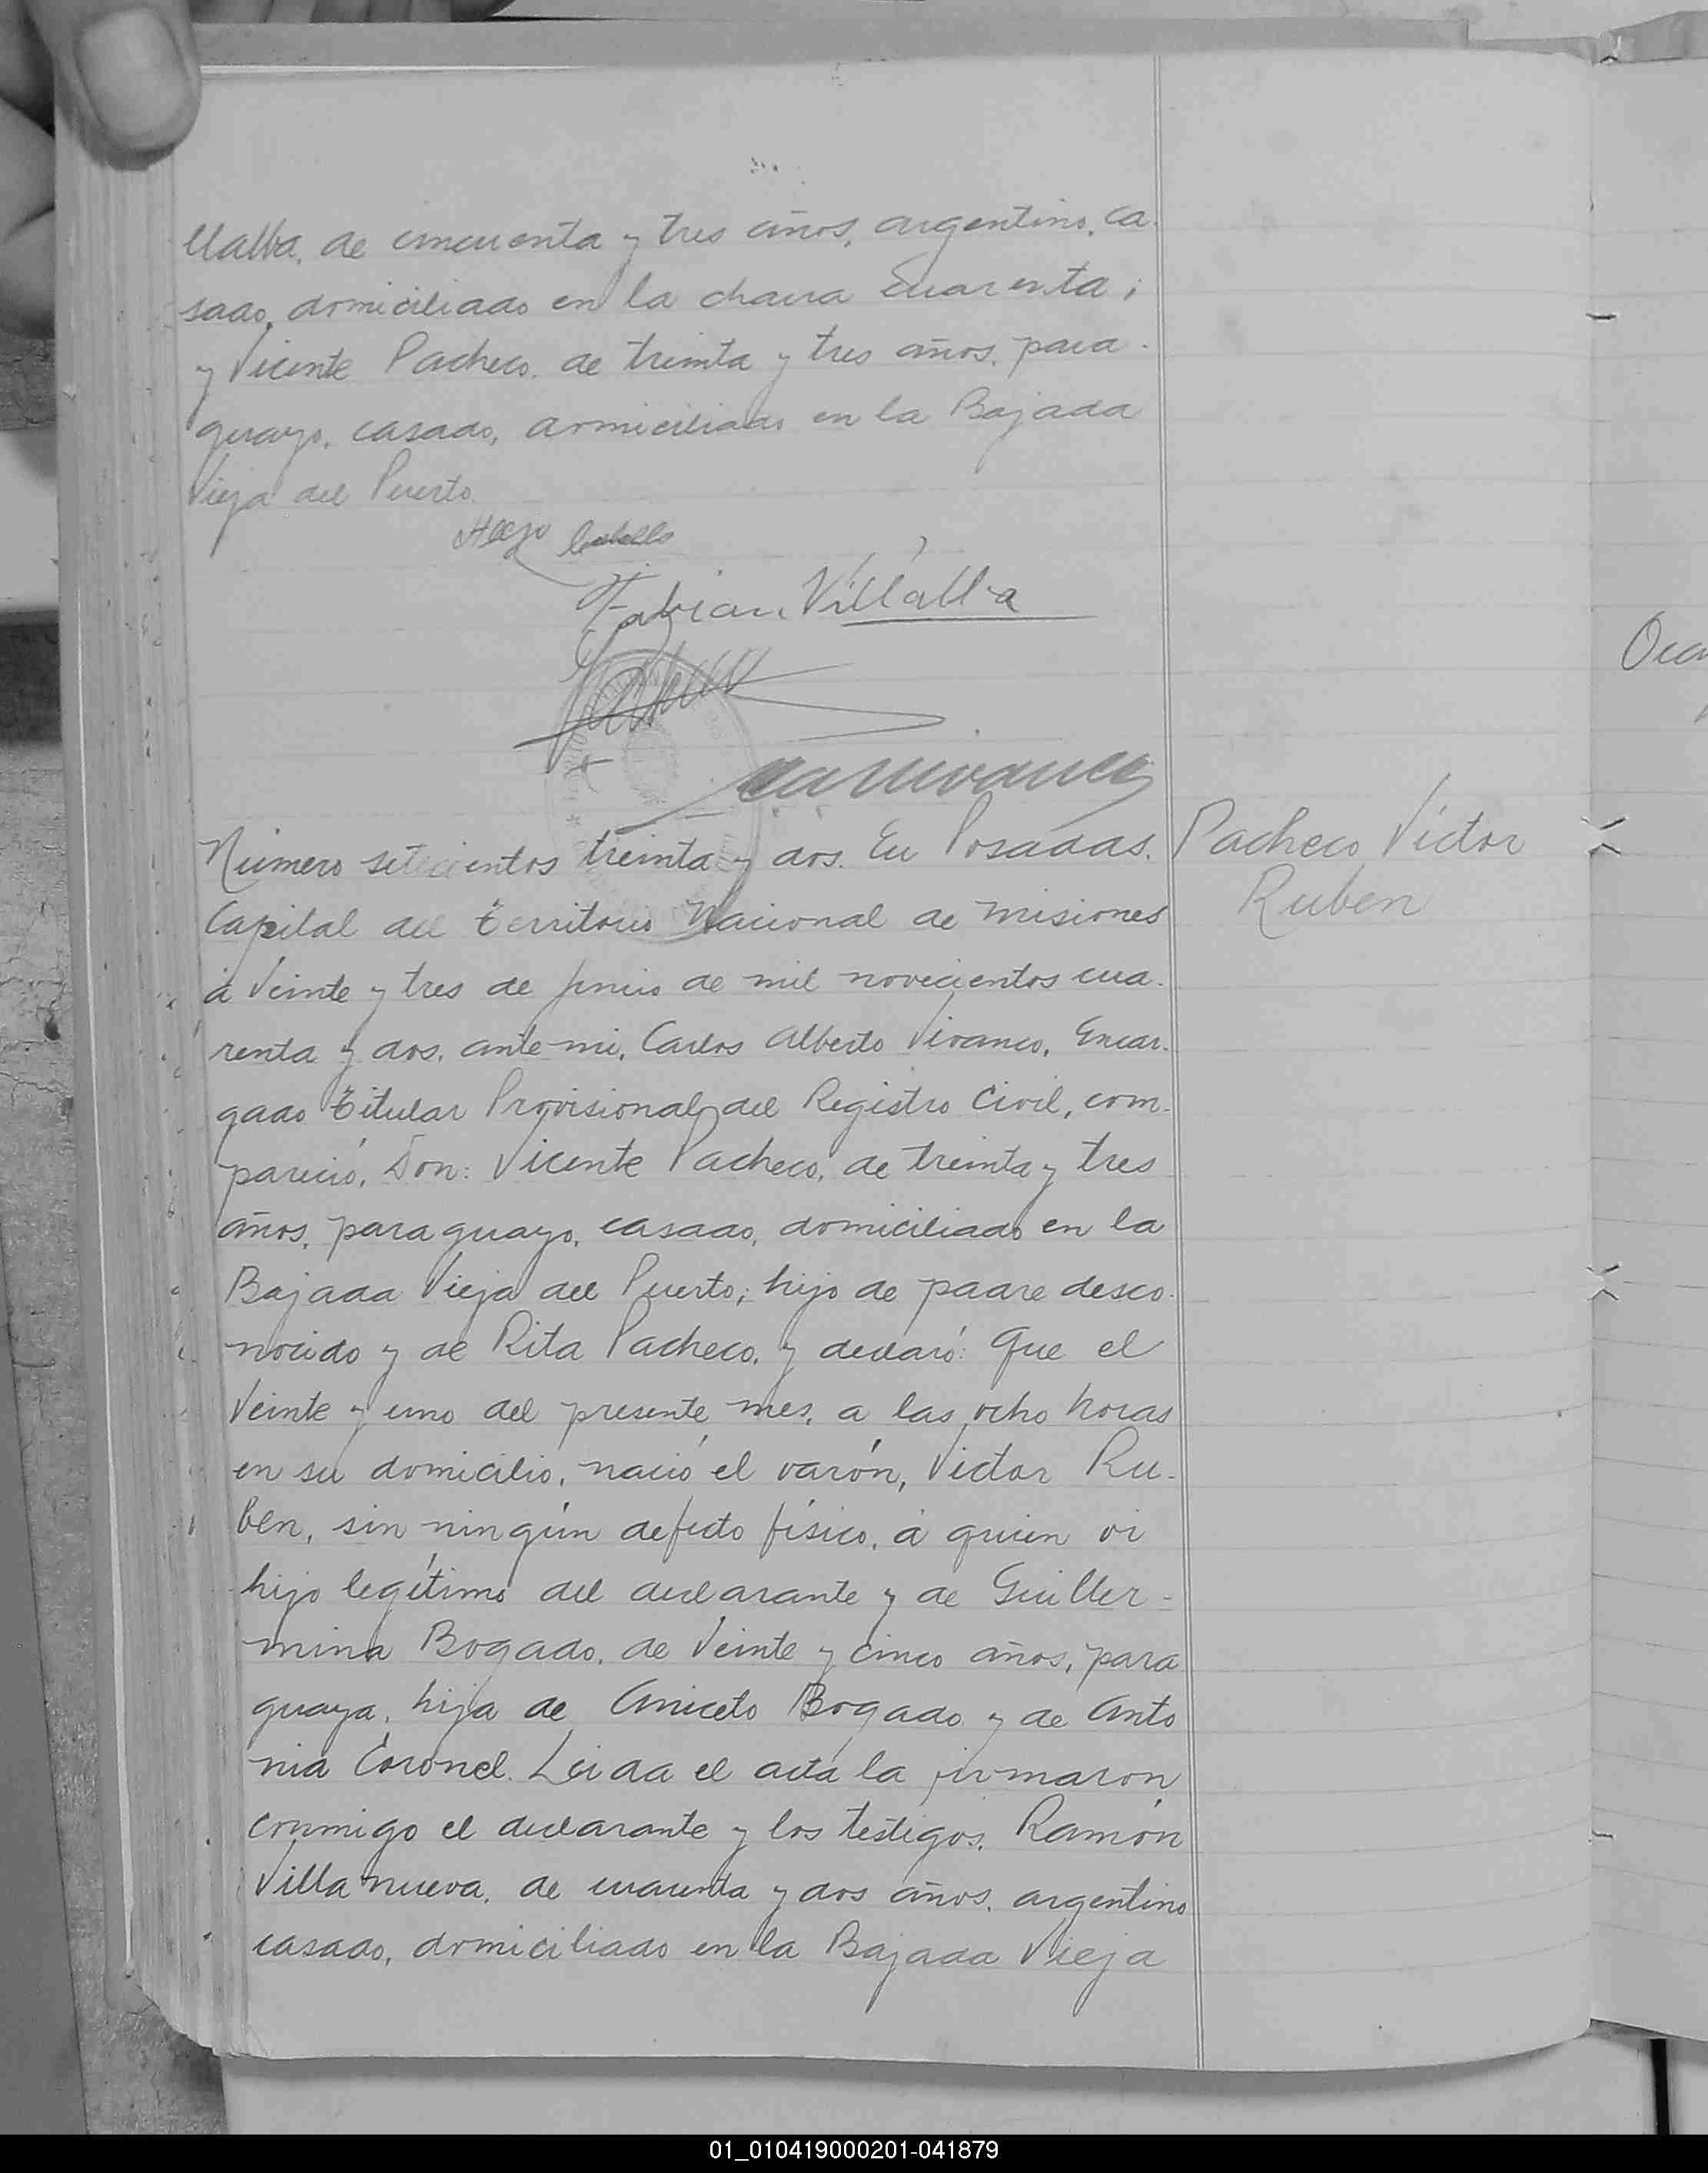 llalba, de cincuenta y tres años, argentino, ca-
sado, domiciliado en la chacra Cuarenta;
y Vicente Pacheco, de treinta y tres años, para-
guayo, casado, domiciliado en la Bajada
Vieja del Puerto.
Fabian Villalba
Número setecientos treinta y dos. En Posadas,
Pacheco, Víctor
Ruben
Capital del Territorio Nacional de Misiones
á Veinte y tres de Junio de mil novecientos cua-
renta y dos, ante mi, Carlos Alberto Vivanco, Encar-
gado Titular Provisional del Registro Civil, com-
pareció, Don: Vicente Pacheco, de treinta y tres
años, paraguayo, casado, domiciliado en la
Bajada Vieja del Puerto; hijo de padre desco-
nocido y de Rita Pacheco, y declaró: Que el
Veinte y uno del presente mes, a las ocho horas
en su domicilio, nació el varón, Victor Ru-
ben, sin ningún defecto físico, á quien vi
hijo legítimo del declarante y de Guiller-
mina Bogado, de Veinte y cinco años, para
guaya, hija de Aniceto Bogado y de Anto
nia Coronel. Leida el acta la firmaron
conmigo el declarante y los testigos, Ramón
Villanueva, de cuarenta y dos años, argentino
casado, domiciliado en la Bajada Vieja
01_010419000201-041879